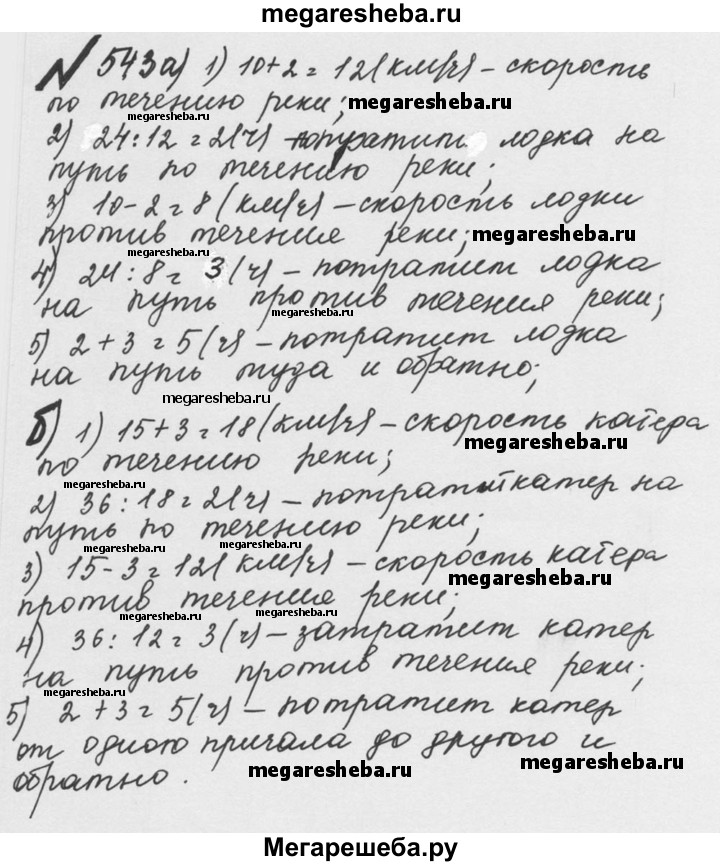 megaresheba.ru
№ 543 а) 1) 10+2=12 (км/ч) – скорость
по течению реки; megaresheba.ru
megaresheba.ru
2) 24:12=2(ч) – потратит лодка на
путь по течению реки;
megaresheba.ru
3) 10-2=8 (км/ч) – скорость лодки
против течения реки; megaresheba.ru
4) 24:8= 3 (ч) – потратит лодка
на путь против течения реки;
megaresheba.ru
5) 2+3=5 (ч) – потратит лодка
на путь туда и обратно;
megaresheba.ru
б) 1) 15+3=18 (км/ч) – скорость катера
megaresheba.ru
по течению реки;
megaresheba.ru
2) 36:18=2(ч) – потратит катер на
путь по течению реки;
megaresheba.ru megaresheba.ru
3) 15-3=12( км/ч) – скорость катера
megaresheba.ru
против течения реки;
megaresheba.ru
4) 36:12=3(ч) – затратит катер
на путь против течения реки;
megaresheba.ru
5) 2+3=5(ч) – потратит катер
от одного причала до другого и
обратно. megaresheba.ru megaresheba.ru
Мегарешеба.ру